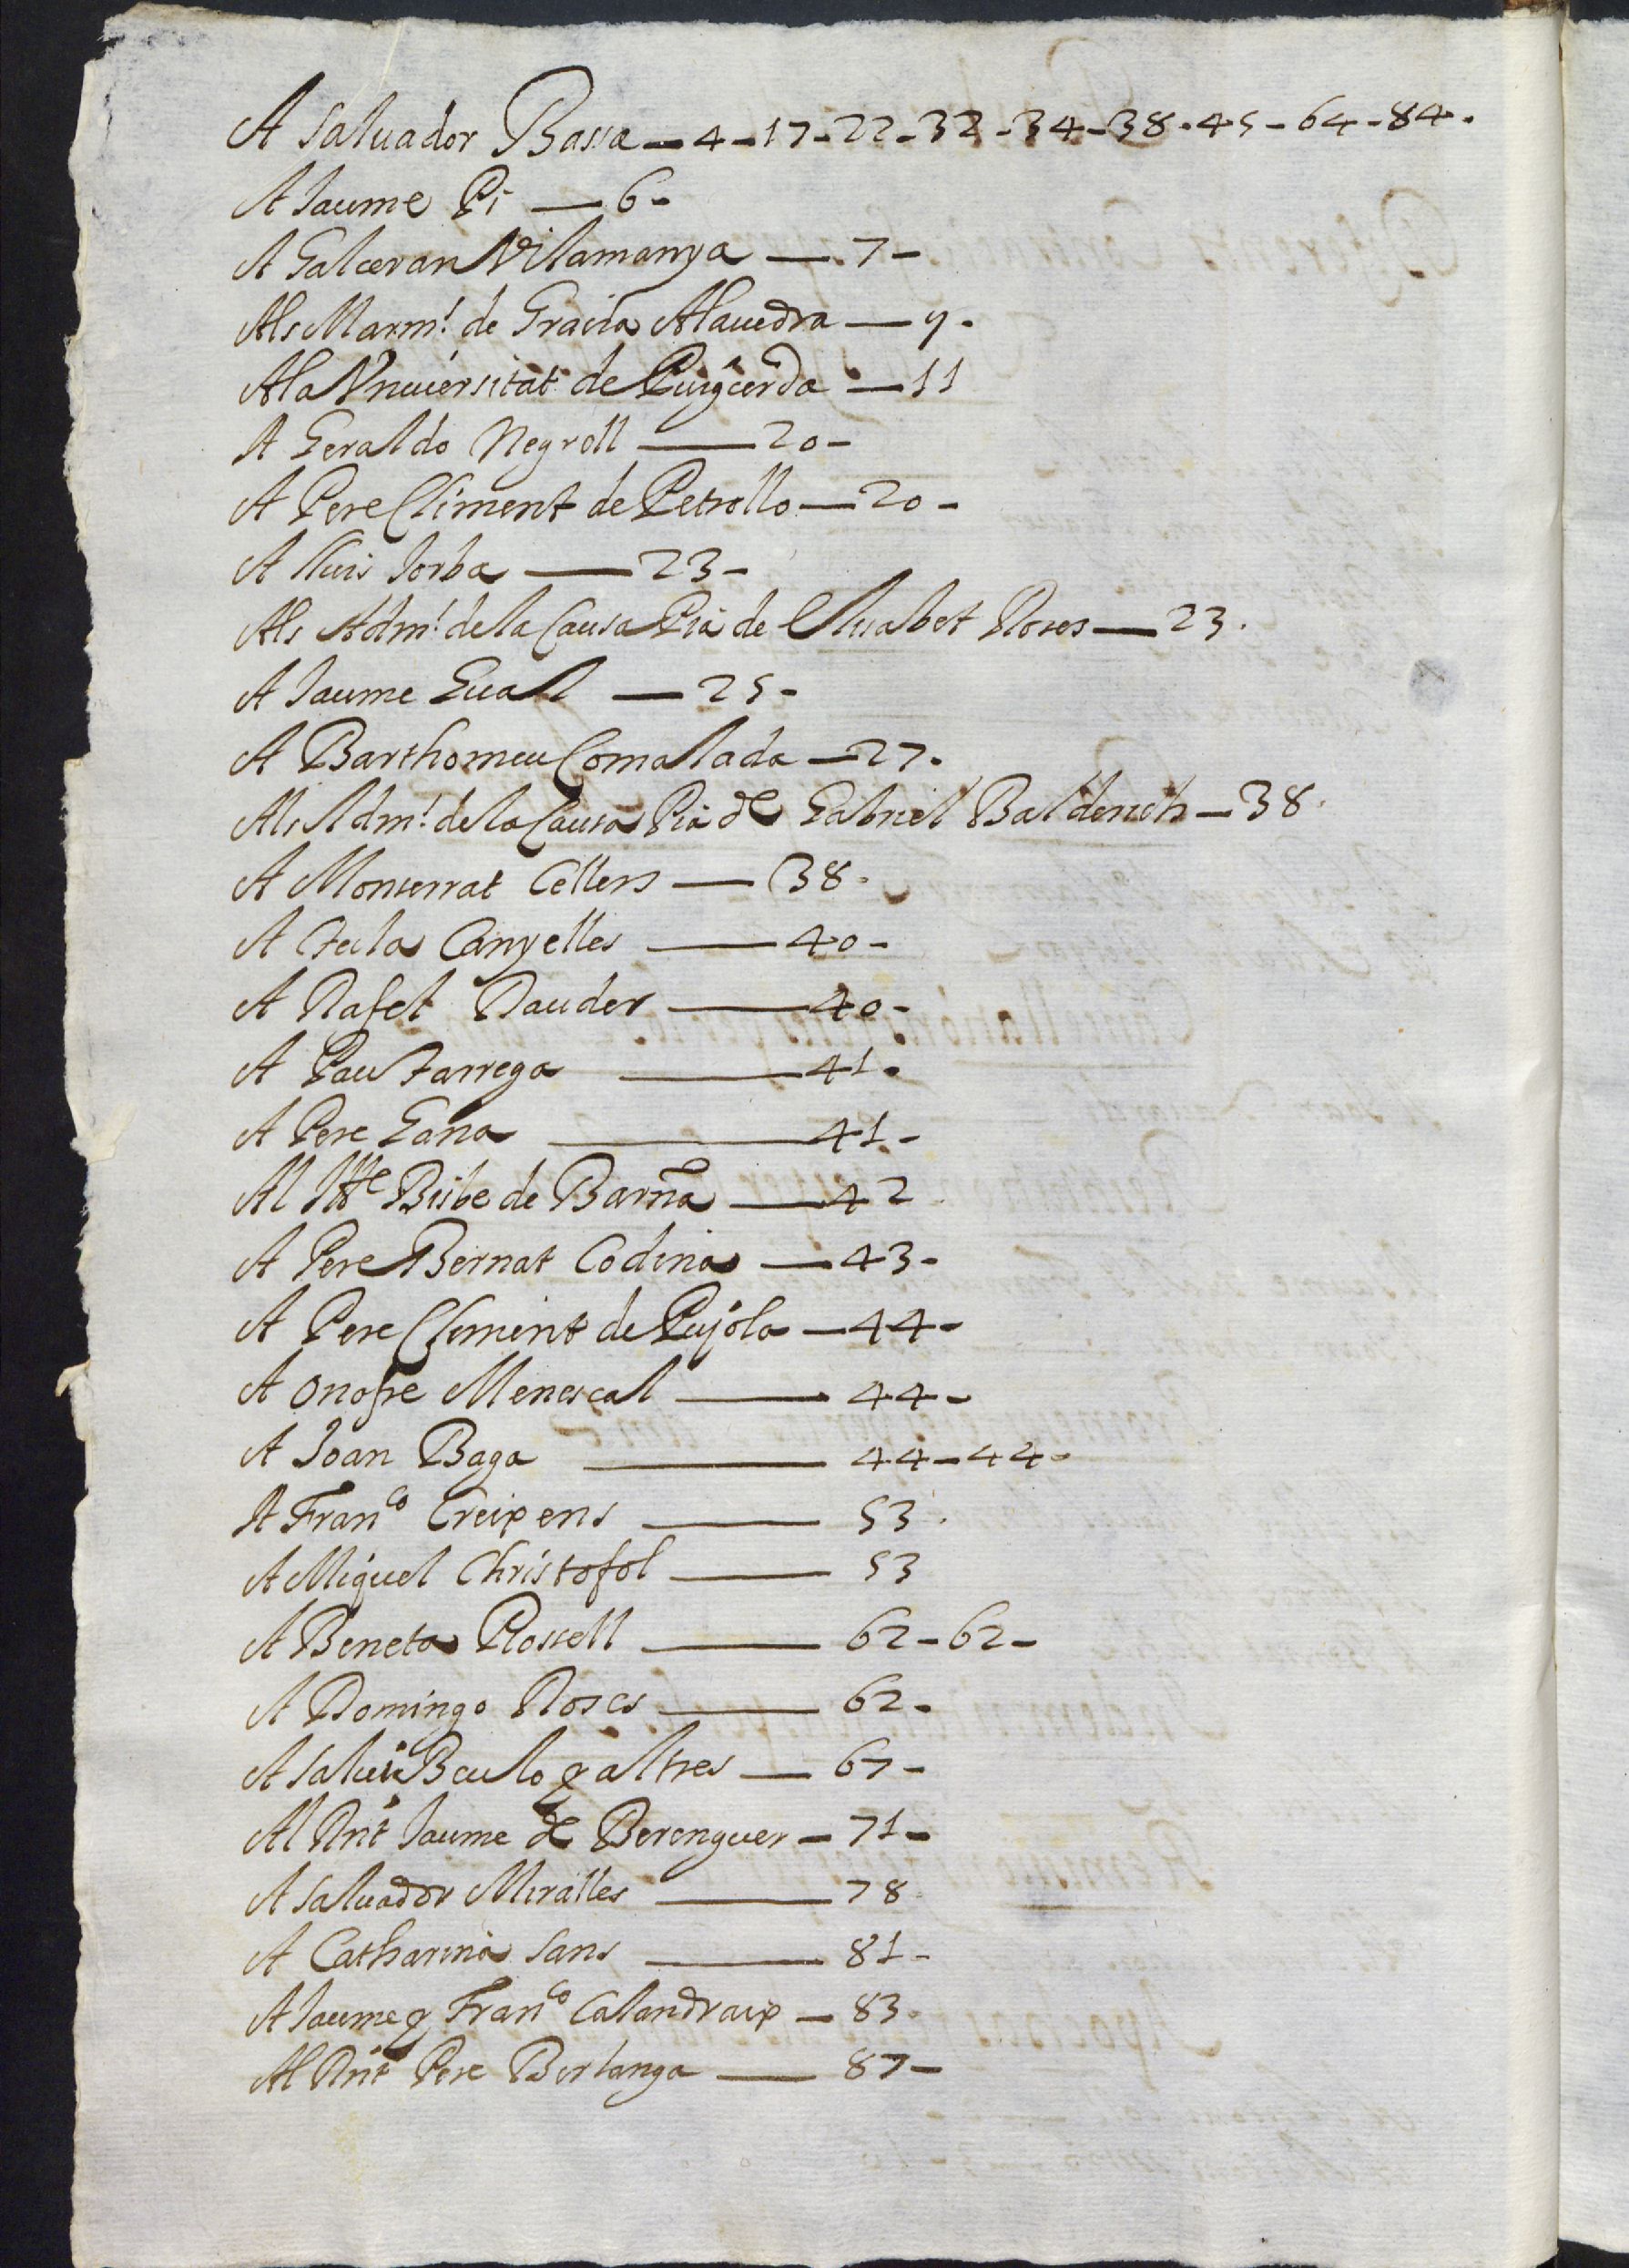 A Saluador Bassa — 4 - 17 - 22 - 32 - 34 - 38 - 45 - 64 - 84 .
A Jaume Pi — 6 -
A Galceran Vilamanya — 7 -
Als Marm.ˢ de Gracia Alauedra — 9 .
A la Vniuersitat de Puigcerda — 11
A Geraldo Negroll — 20 -
A Pere Climent de Petrollo — 20 -
A Lluis Jorba — 23 -
Als Adm.ˢ de la Causa Pia de Elisabet Roses — 23 .
A Jaume Gual — 25 -
A Barthomeu Comalada — 27 .
Als Adm.ˢ de la Causa Pia de Gabriel Balderich — 38 .
A Monserrat Cellers — 38 .
A Tecla Canyelles — 40 -
A Rafel Dauder — 40 -
A Pau Tarrega — 41 .
A Pere Gana — 41 -
Al Ill.ᵉ Bisbe de Barña — 42
A Pere Bernat Codina — 43 -
A Pere Climent de Pujola — 44 -
A Onofre Menescal — 44 -
A Joan Baga — 44 - 44 -
A Franᶜᵒ Creixens — 53 .
A Miquel Christofol — 53
A Beneta Rossell — 62 - 62 -
A Domingo Roses — 62 -
A Salui Beulo y altres — 67 -
Al Rñt Jaume de Berenguer — 71 -
A Saluador Miralles — 78
A Catharina Sans — 81 -
A Jaume y Franᶜᵒ Calandraix — 83 -
Al Rñt Pere Berlanga — 87 -